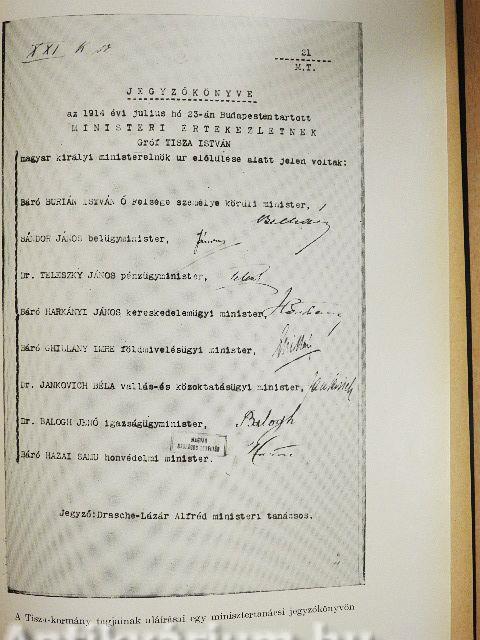 XXI
21
M.T.
JEGYZŐKÖNYVE
az 1914 évi julius hó 23-án Budapesten tartott
MINISTERI ÉRTEKEZLETNEK
Gróf TISZA ISTVÁN
magyar királyi ministerelnök ur előlülése alatt jelen voltak:
Báró BURIÁN ISTVÁN Ő Felsége személye körüli minister,
SÁNDOR JÁNOS belügyminister,
Dr. TELESZKY JÁNOS pénzügyminister,
Báró HARKÁNYI JÁNOS kereskedelemügyi minister,
Báró GHILLÁNY IMRE földmivelésügyi minister,
Dr. JANKOVICH BÉLA vallás-és közoktatásügyi minister,
Dr. BALOGH JENŐ igazságügyminister, Balogh
MAGYAR
ORSZÁGOS LEVÉLTÁR
Báró HAZAI SAMU honvédelmi minister.
Jegyző: Drasche-Lázár Alfréd ministeri tanácsos.
A Tisza-kormány tagjainak aláírásai egy minisztertanácsi jegyzőkönyvön